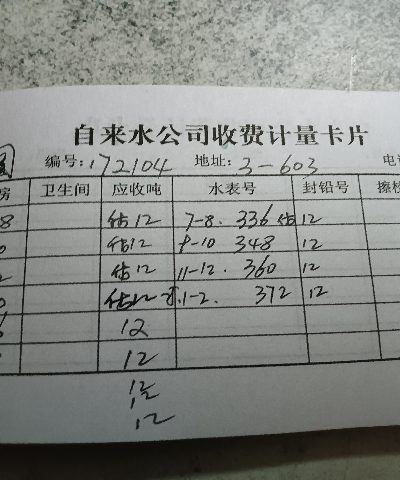 自来水公司收费计量卡片
编号:172104 地址:3-603
房 卫生间 应收吨 水表号 封铅号
8 估12 7-8. 336 估12
0 估12 9-10 348 12
2 估12 11-12. 360 12
0 估12 1-2. 372 12
12
12
12
12